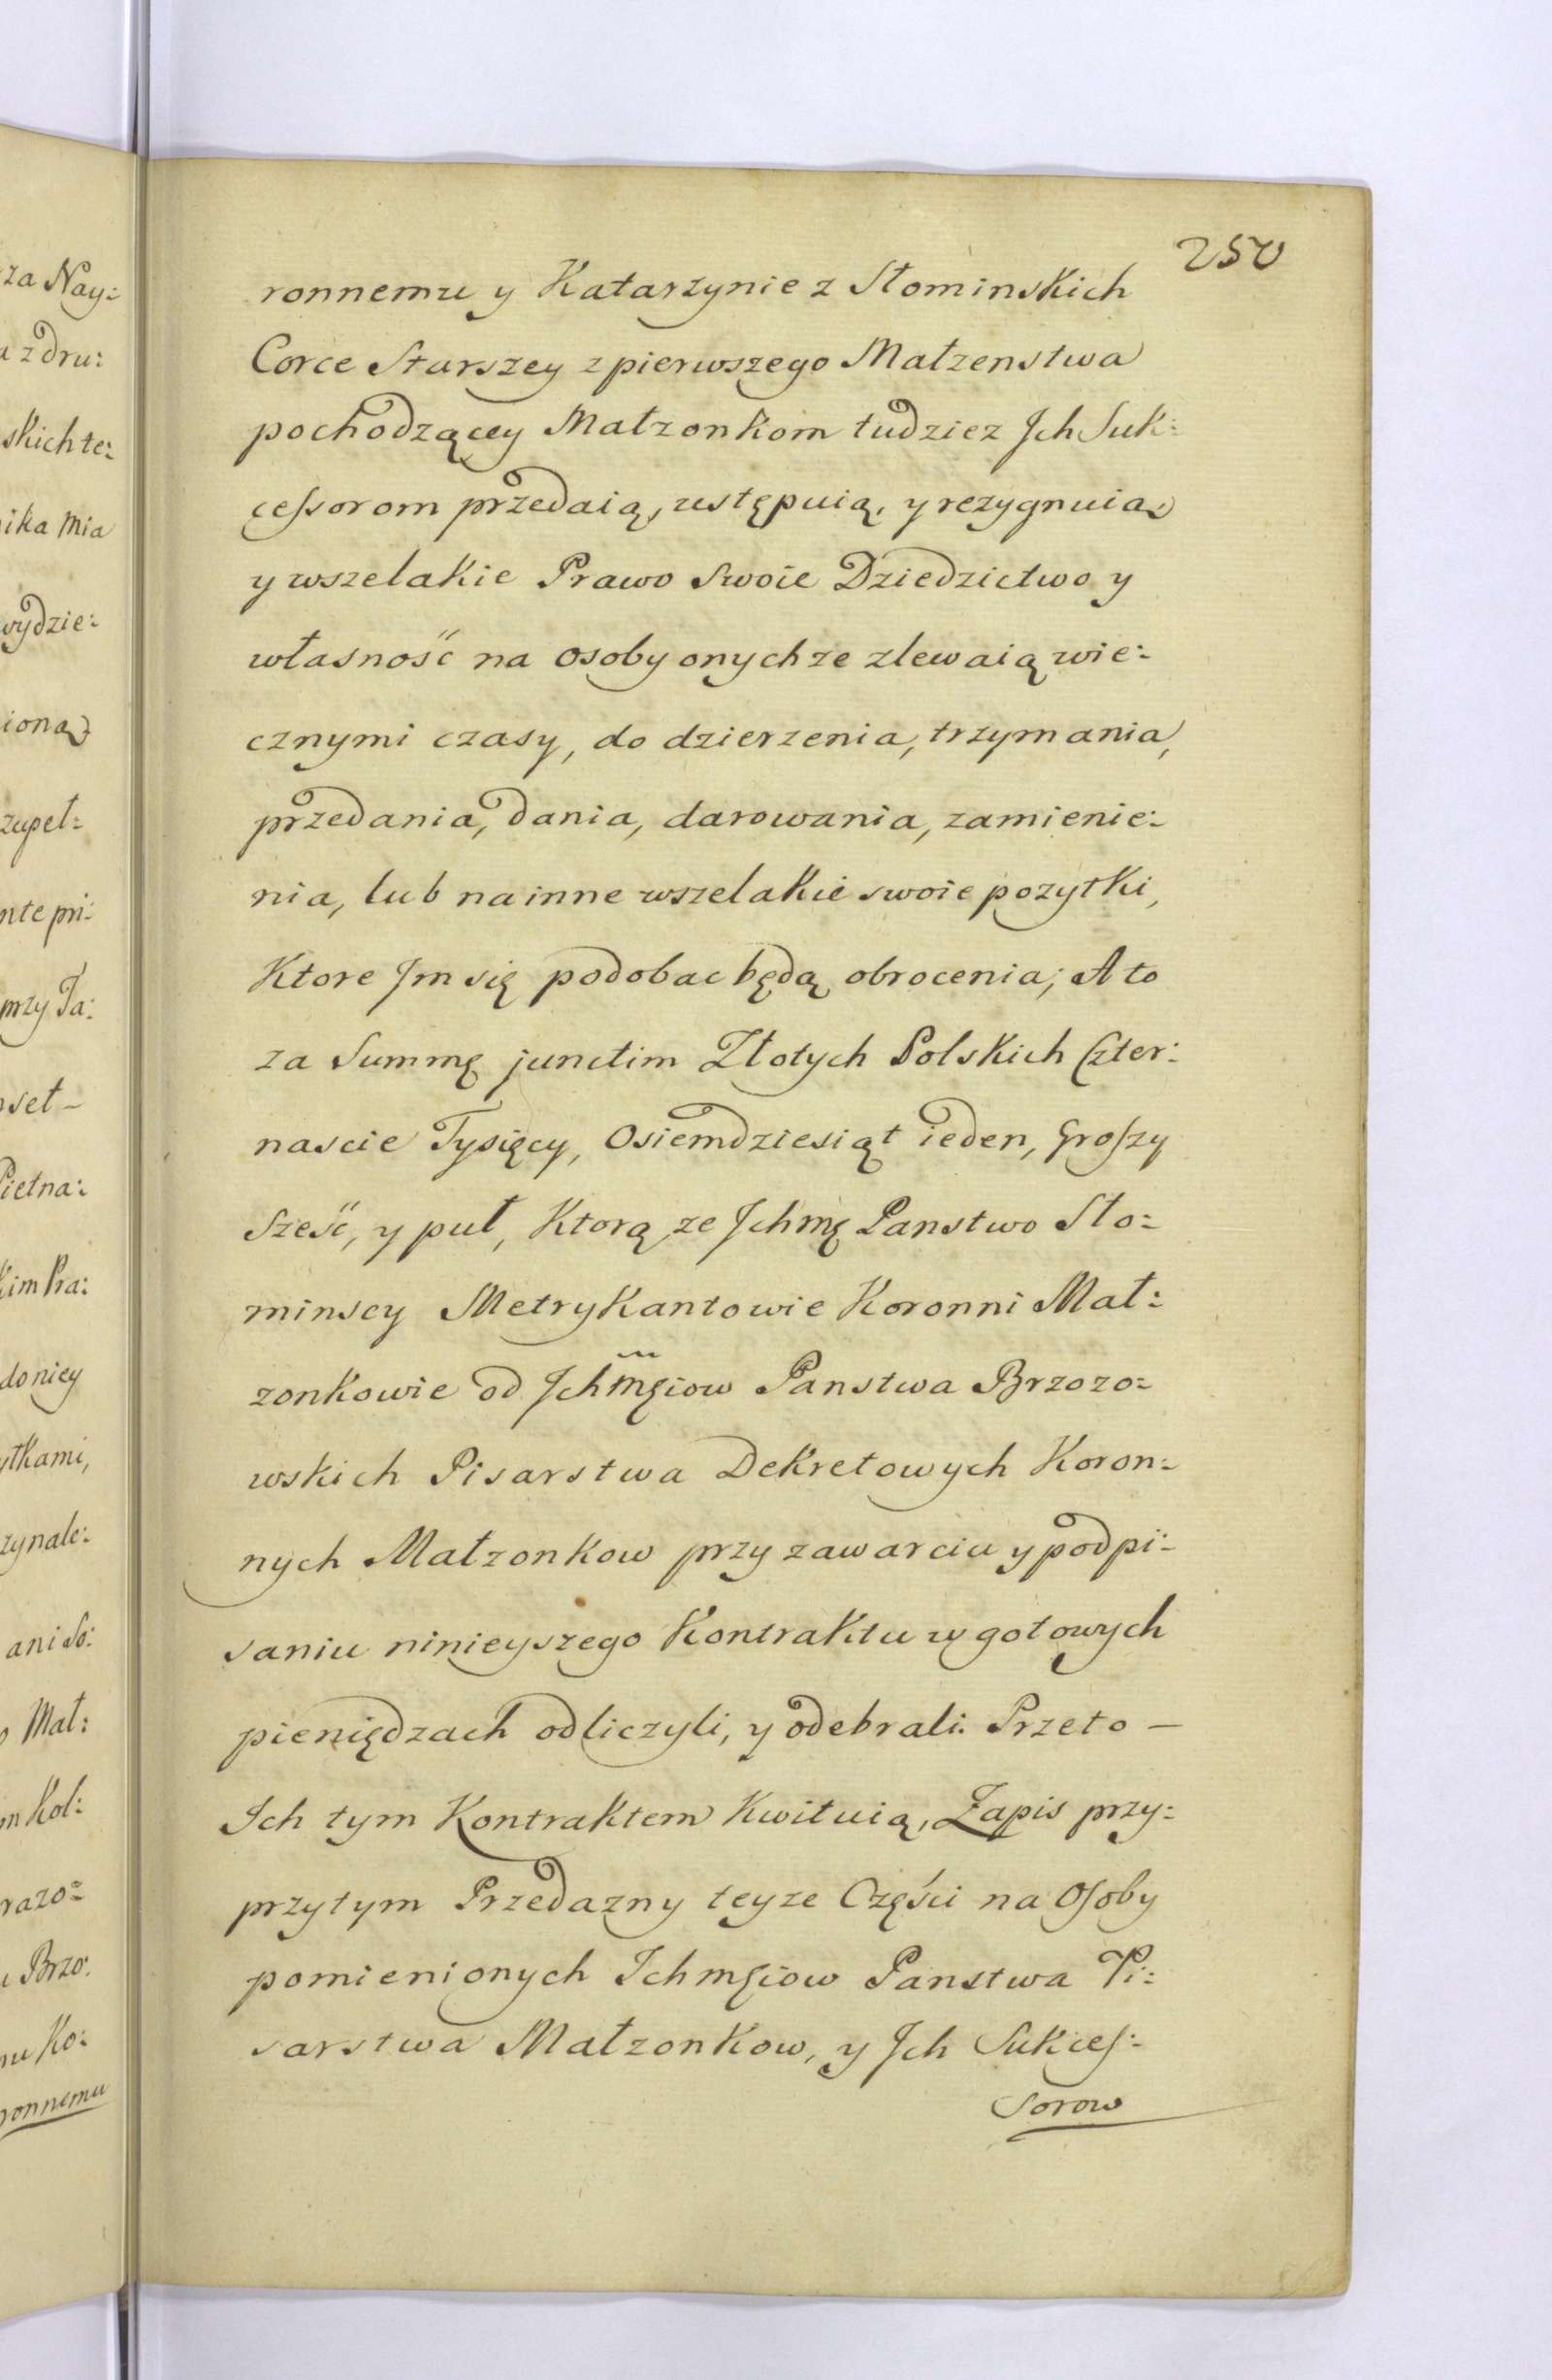 za Nay:
a z dru:
skich te:
nika Mia
wydzie:
ioną
zupeł:
nte pri:
przy Ta:
set –
Pietna:
kim Pra:
do niey
ytkami,
zynale:
ani So:
o Mał:
m Kol:
razo:
u Brzo:
nu Ko:
ronnemu
250
ronnemu y Katarzynie z Słominskich
Corce Starszey z pierwszego Małzenstwa
pochodzącey Małzonkom tudziez Jch Suk:
cessorom przedaią, ustępuią, y rezygnuią
y wszelakie Prawo Swoie Dziedzictwo y
własność na osoby onychze zlewaią wie:
cznymi czasy, do dzierzenia, trzymania,
przedania, dania, darowania, zamienie:
nia, lub na inne wszelakie swoie pozytki,
Ktore Jm się podobac będą obrocenia; A to
za Summę junctim Złotych Polskich Czter:
nascie Tysięcy, Osiemdziesiąt ieden, Groszy
Sześć, y puł, Ktorą ze Jchmę Panstwo Sło:
minscy Metrykantowie Koronni Mał:
zonkowie od Jchmęiow Panstwa Brzozo:
wskich Pisarstwa Dekretowych Koron:
nych Małzonkow przy zawarciu y podpi:
saniu ninieyszego Kontraktu w gotowych
pieniędzach odliczyli, y odebrali. Przeto –
Ich tym Kontraktem Kwituią, Zapis przy:
przytym Przedazny teyze Części na Osoby
pomienionych Ichmęiow Panstwa Pi:
sarstwa Małzonkow, y Jch Sukces:
Sorow